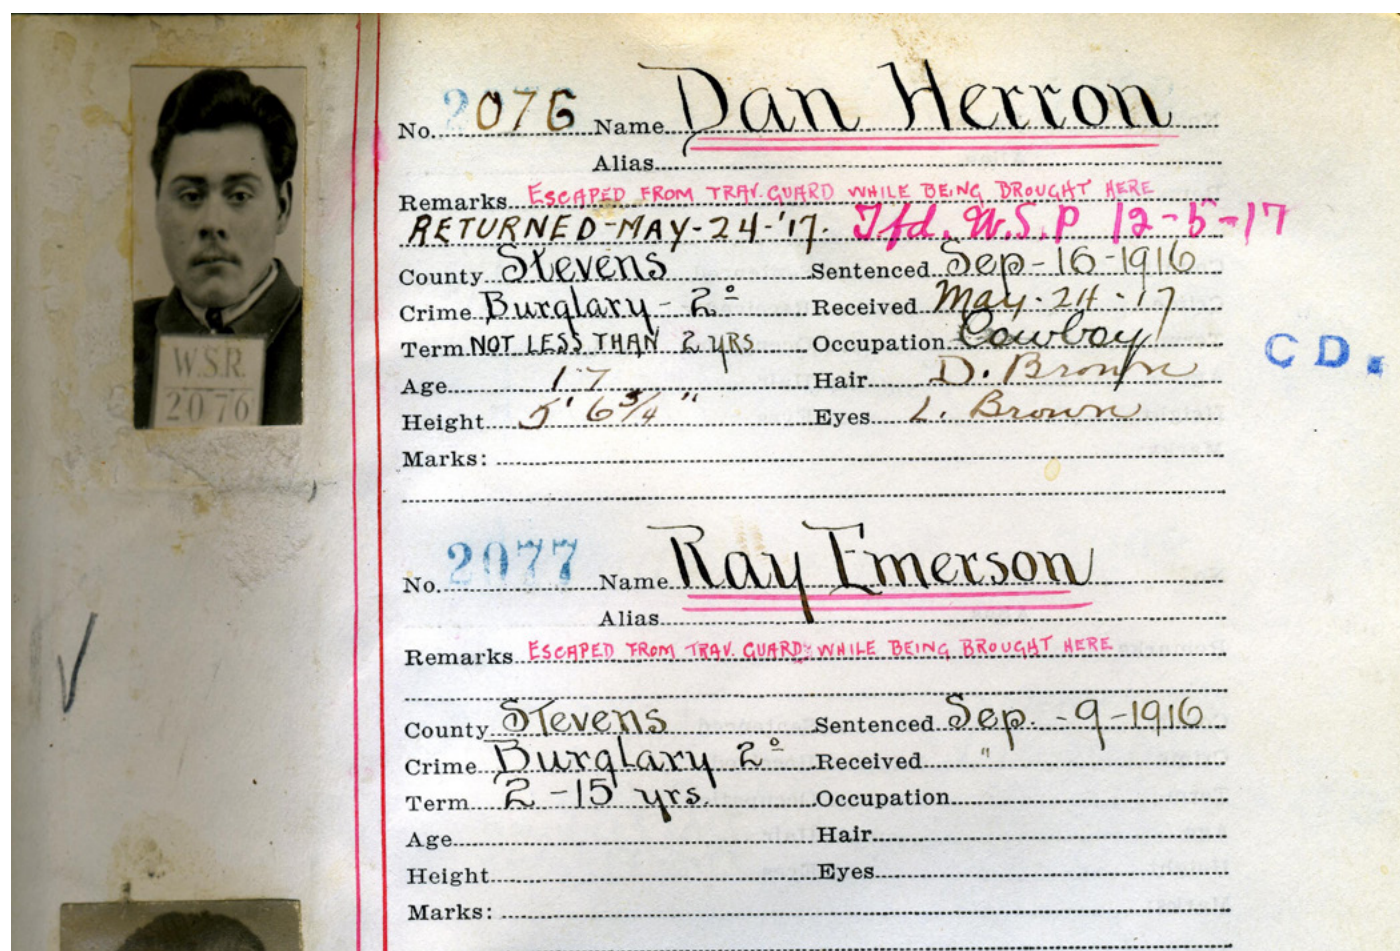 No. 2076 Name Dan Herron
Alias
Remarks ESCAPED FROM TRAV. GUARD WHILE BEING BROUGHT HERE
RETURNED-MAY-24-'17. Tfd. W.S.P 12-5-17
County Stevens Sentenced Sep-16-1916
Crime Burglary - 2° Received May-24-17
Term NOT LESS THAN 2 YRS Occupation Cowboy
Age 17 Hair D. Brown
Height 5' 6 3/4 " Eyes L. Brown
Marks:
W.S.R.
2076
CD.
No. 2077 Name Ray Emerson
Alias
Remarks ESCAPED FROM TRAV. GUARD WHILE BEING BROUGHT HERE
County Stevens Sentenced Sep. -9-1916
Crime Burglary 2° Received "
Term 2-15 yrs. Occupation
Age Hair
Height Eyes
Marks: